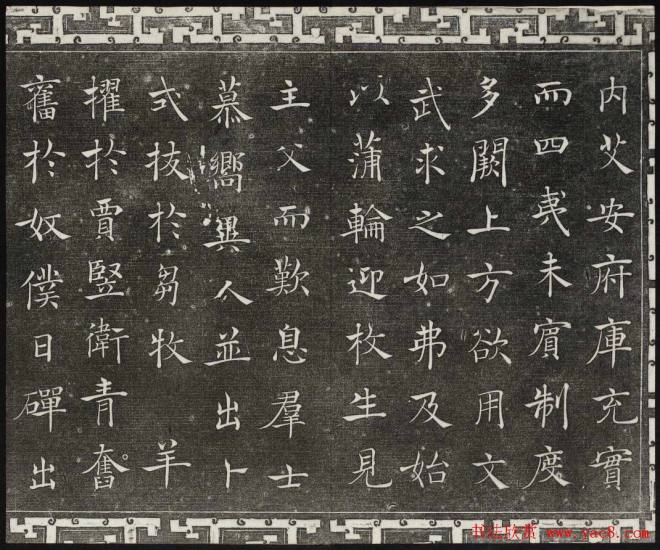 内艾安府庫充實
而四夷未賓制度
多闕上方欲用文
武求之如弗及始
以蒲輪迎枚生見
主父而歎息羣士
慕嚮異人並出卜
式拔於芻牧 羊
擢於賈豎衛青奮
舊於奴僕日磾出
书法欣赏 www.yac8.com